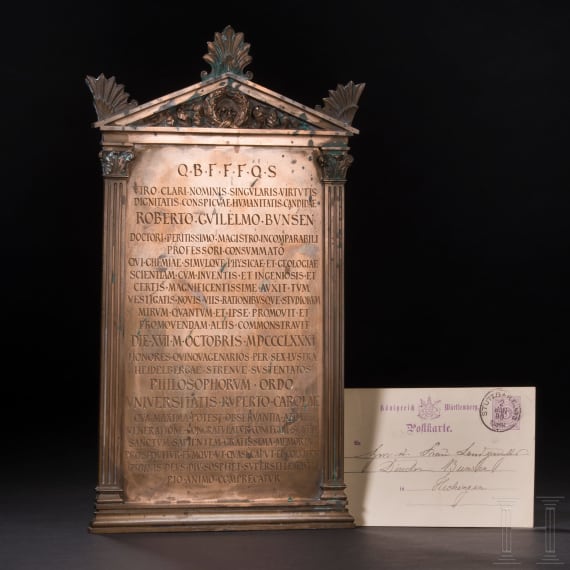 Q·B·F·F·F·Q·S
VIRO·CLARI·NOMINIS·SINGVLARIS·VIRTVTIS
DIGNITATIS·CONSPICVAE·HVMANITATIS·CANDIDAE
ROBERTO·GVILELMO·BVNSEN
DOCTORI·PERITISSIMO·MAGISTRO·INCOMPARABILI
PROFESSORI·CONSVMMATO
QVI·CHEMIAE·SIMVLQVE·PHYSICAE·ET·GEOLOGIAE
SCIENTIAM·CVM·INVENTIS·ET·INGENIOSIS·ET
CERTIS·MAGNIFICENTISSIME·AVXIT·TVM
VESTIGATIS·NOVIS·VIIS·RATIONIBVSQVE·STVDIORVM
MIRVM·QVANTVM·ET·IPSE·PROMOVIT·ET
PROMOVENDAM·ALIIS·COMMONSTRAVIT
DIE·XVII·M·OCTOBRIS·MDCCCLXXXI
HONORES·QVINQVAGENARIOS·PER·SEX·LVSTRA
HEIDELBERGAE·STRENVE·SVSTENTATOS
PHILOSOPHORVM·ORDO
VNIVERSITATIS·RVPERTO·CAROLAE
QVA·MAXIMA·POTEST·OBSERVANTIA·AC
VENERATIONE·CONGRATVLATVR
SANCTVM·SAPIENTEM·GRATISSIMA·MEMORIA
PIO·ANIMO·COMPRECATVR
Königreich Württemberg.
Postkarte.
STUTTGART
in